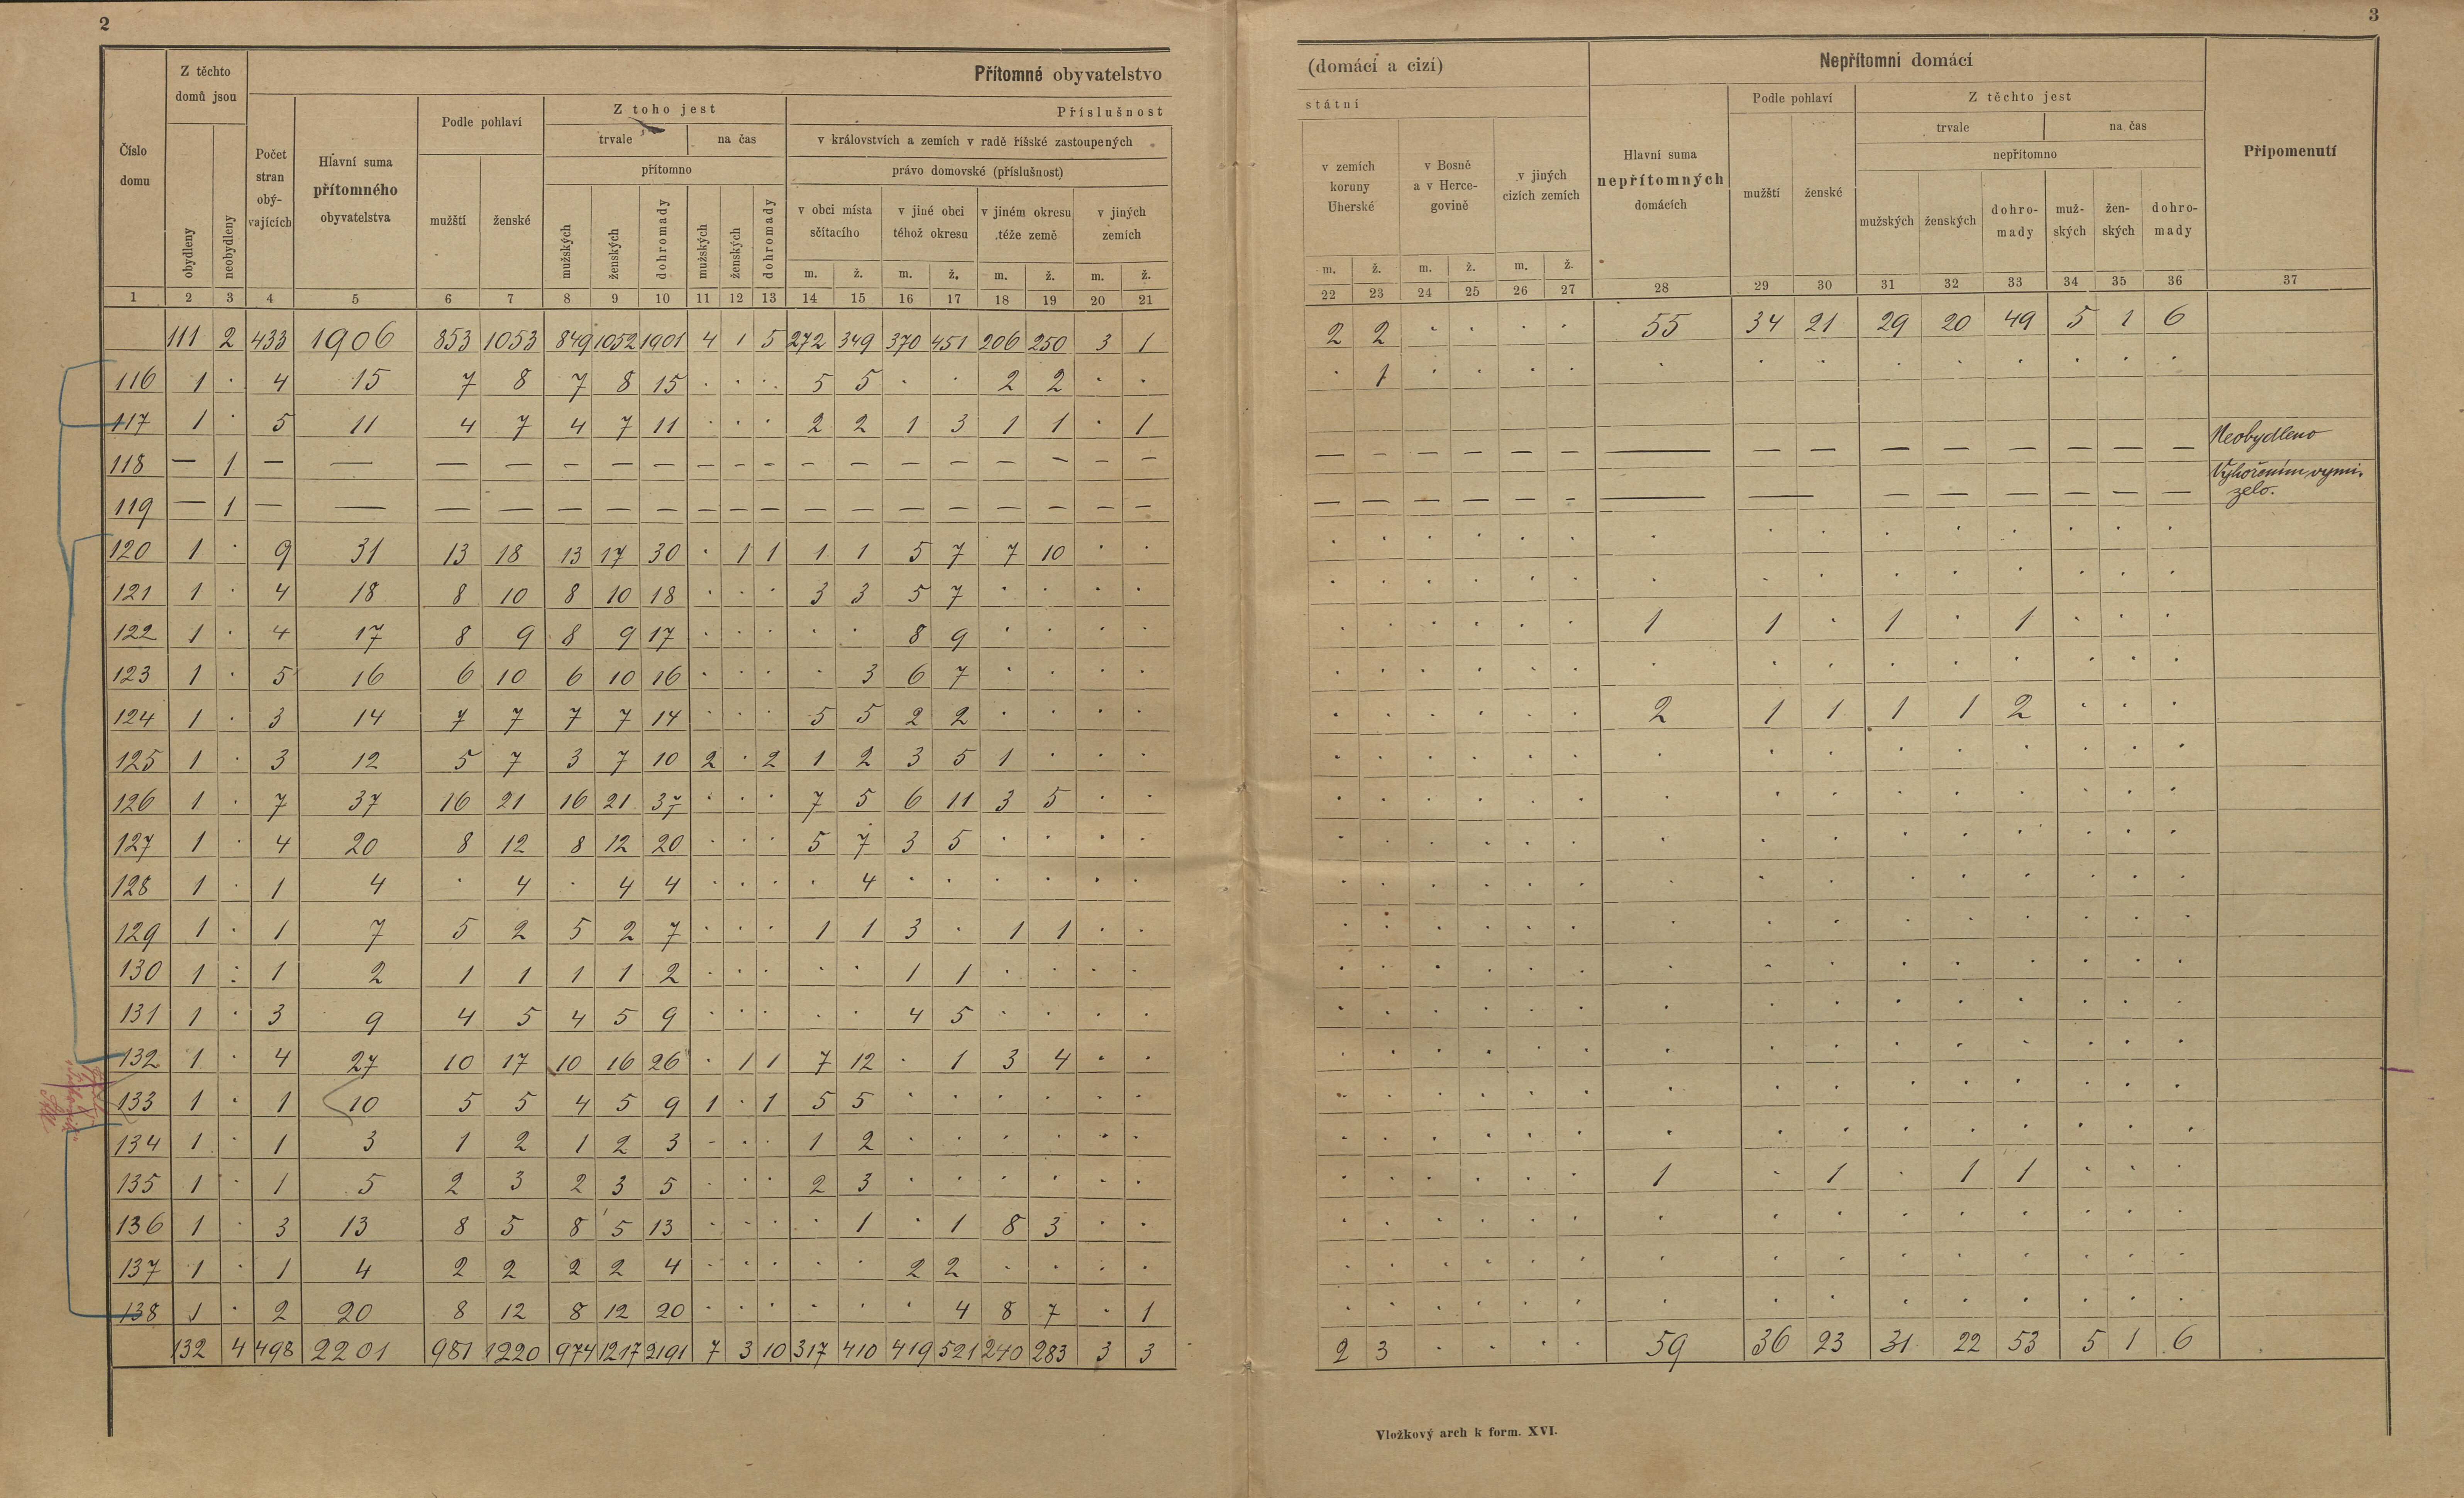 2
3
Z těchto domů jsou
Přítomné obyvatelstvo
(domácí a cizí)
Nepřítomni domácí
Číslo domu
obydleny
neobydleny
Počet stran obý-vajících
Hlavní suma přítomného obyvatelstva
Podle pohlaví
mužští
ženské
Z toho jest
trvale
na čas
přítomno
mužských
ženských
dohromady
mužských
ženských
dohromady
Příslušnost
státní
v královstvích a zemích v radě říšské zastoupených
právo domovské (příslušnost)
v obci místa sčítacího
v jiné obci téhož okresu
v jiném okresu téže země
v jiných zemích
m. ž. m. ž. m. ž. m. ž.
v zemích koruny Uherské
v Bosně a v Herce-govině
v jiných cizích zemích
m. ž. m. ž. m. ž.
Hlavní suma nepřítomných domácích
Podle pohlaví
mužští
ženské
Z těchto jest
trvale
na čas
nepřítomno
mužských
ženských
dohro-mady
muž-ských
žen-ských
dohro-mady
Připomenutí
1 2 3 4 5 6 7 8 9 10 11 12 13 14 15 16 17 18 19 20 21 22 23 24 25 26 27 28 29 30 31 32 33 34 35 36 37
111 2 433 1906 853 1053 849 1052 1901 4 1 5 272 349 370 451 206 250 3 1 2 2 · · · · 55 34 21 29 20 49 5 1 6
116 1 · 4 15 7 8 7 8 15 · · · 5 5 · · 2 2 · · · 1 · · · · · · · · · · · · ·
117 1 · 5 11 4 7 4 7 11 · · · 2 2 1 3 1 1 · 1
118 — 1 — — — — — — — — — — — — — — — — — — — — — — — — — — — — — — — — — Neobydleno
119 — 1 — — — — — — — — — — — — — — — — — — — — — — — — — — — — — — — — Vyhořením vymi-
zelo.
120 1 · 9 31 13 18 13 17 30 · 1 1 1 1 5 7 7 10 · · · · · · · · · · · · · · · · ·
121 1 · 4 18 8 10 8 10 18 · · · 3 3 5 7 · · · · · · · · · · · · · · · · · · ·
122 1 · 4 17 8 9 8 9 17 · · · · · 8 9 · · · · · · · · · · 1 1 · 1 · 1 · · ·
123 1 · 5 16 6 10 6 10 16 · · · · 3 6 7 · · · · · · · · · · · · · · · · · · ·
124 1 · 3 14 7 7 7 7 14 · · · 5 5 2 2 · · · · · · · · · · 2 1 1 1 1 2 · · ·
125 1 · 3 12 5 7 3 7 10 2 · 2 1 2 3 5 1 · · · · · · · · · · · · · · · · · ·
126 1 · 7 37 16 21 16 21 37 · · · 7 5 6 11 3 5 · · · · · · · · · · · · · · · · ·
127 1 · 4 20 8 12 8 12 20 · · · 5 7 3 5 · · · · · · · · · · · · · · · · · · ·
128 1 · 1 4 · 4 · 4 4 · · · · 4 · · · · · · · · · · · · · · · · · · · · ·
129 1 · 1 7 5 2 5 2 7 · · · 1 1 3 · 1 1 · · · · · · · · · · · · · · · · ·
130 1 : 1 2 1 1 1 1 2 · · · · · 1 1 · · · · · · · · · · · · · · · · · · ·
131 1 · 3 9 4 5 4 5 9 · · · · · 4 5 · · · · · · · · · · · · · · · · · · ·
132 1 · 4 27 10 17 10 16 26 · 1 1 7 12 · 1 3 4 · · · · · · · · · · · · · · · · ·
133 1 · 1 10 5 5 4 5 9 1 · 1 5 5 · · · · · · · · · · · · · · · · · · · · ·
134 1 · 1 3 1 2 1 2 3 · · · 1 2 · · · · · · · · · · · · · · · · · · · · ·
135 1 · 1 5 2 3 2 3 5 · · · 2 3 · · · · · · · · · · · · 1 · 1 · 1 1 · · ·
136 1 · 3 13 8 5 8 5 13 · · · · 1 · 1 8 3 · · · · · · · · · · · · · · · · ·
137 1 · 1 4 2 2 2 2 4 · · · · · 2 2 · · · · · · · · · · · · · · · · · · ·
138 1 · 2 20 8 12 8 12 20 · · · · · · 4 8 7 · 1 · · · · · · · · · · · · · · ·
132 4 498 2201 981 1220 974 1217 2191 7 3 10 317 410 419 521 240 283 3 3 2 3 · · · · 59 36 23 31 22 53 5 1 6
Vložkový arch k form. XVI.